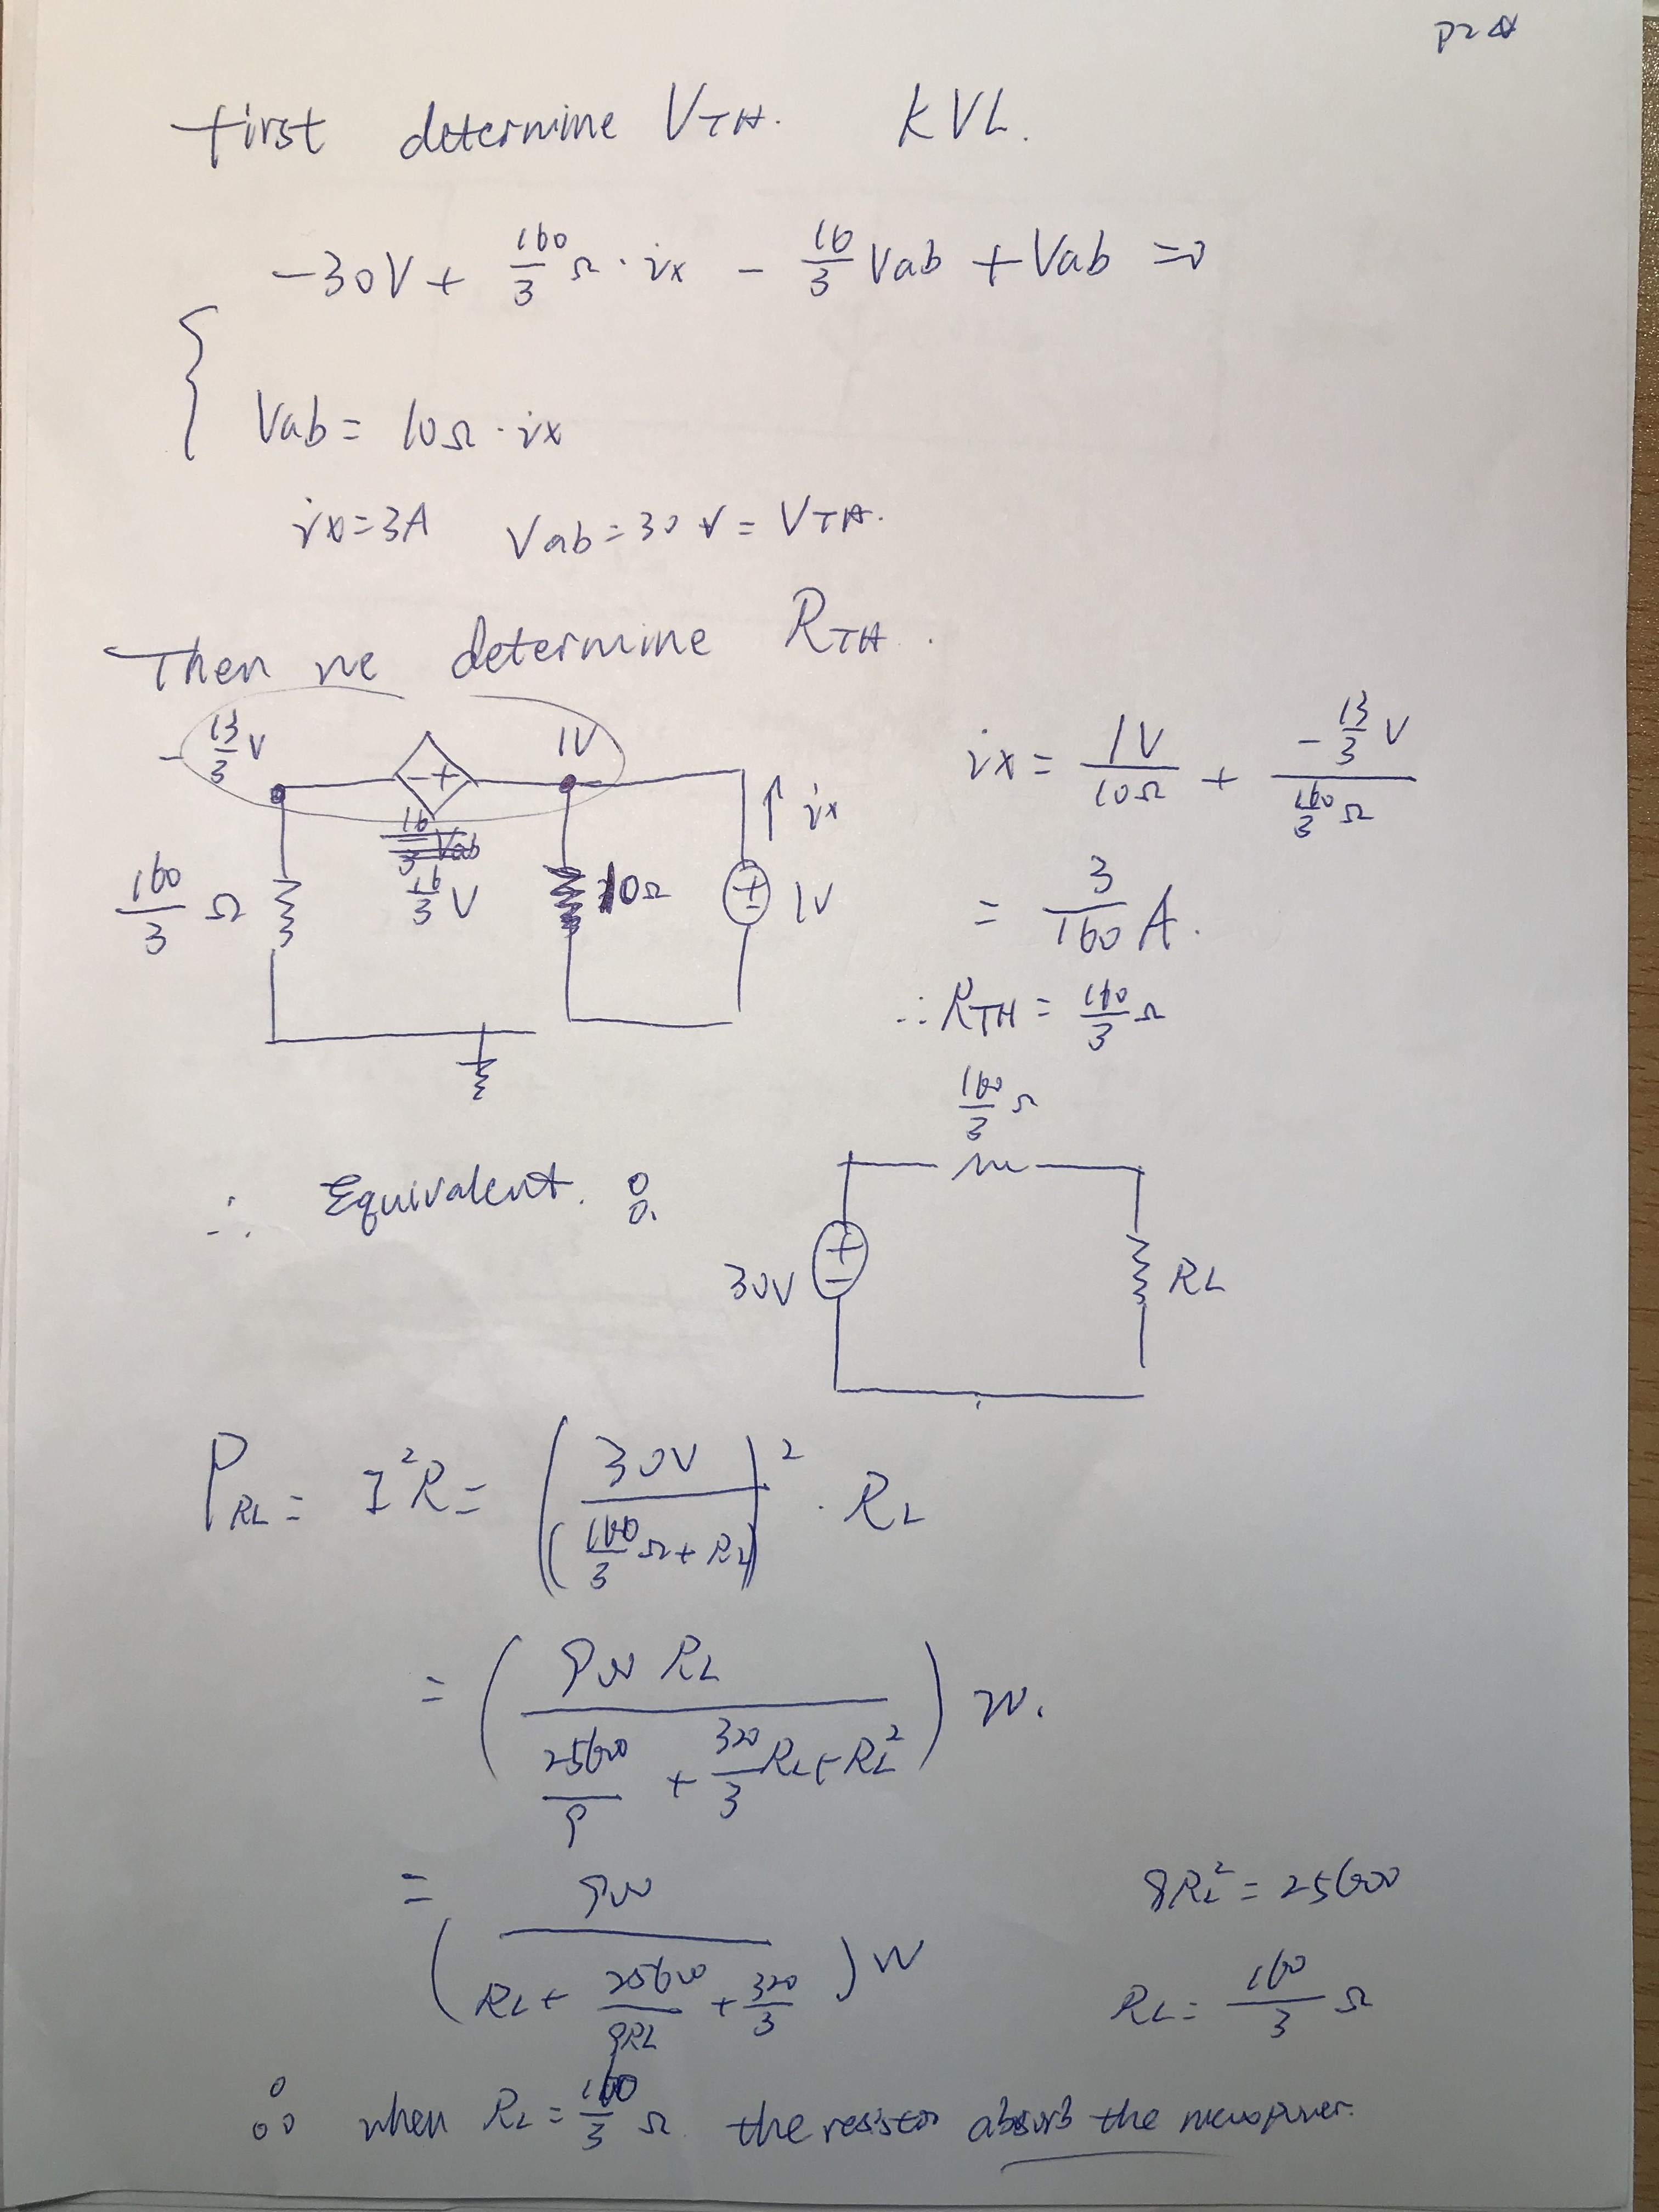 P2
First determine VTH. KVL.
-30V + 160/3 Ω · ix - 16/3 Vab + Vab = 0
Vab = 10Ω · ix
ix = 3A Vab = 30V = VTH.
Then we determine RTH.
-13/3 V
1V
- +
16/3 Vab
16/3 V
160/3 Ω
10Ω
ix
+ -
1V
ix = 1V/10Ω + -13/3 V / 160/3 Ω
= 3/160 A.
∴ RTH = 160/3 Ω
160/3 Ω
∴ Equivalent :
30V
+ -
RL
PRL = I²R = (30V/(160/3 Ω + RL))² · RL
= (900 RL / 25600/9 + 320/3 RL + RL²) W.
= (900 / RL + 25600/9RL + 320/3) W
9RL² = 25600
RL = 160/3 Ω
∴ when RL = 160/3 Ω the resistor absorb the max power.